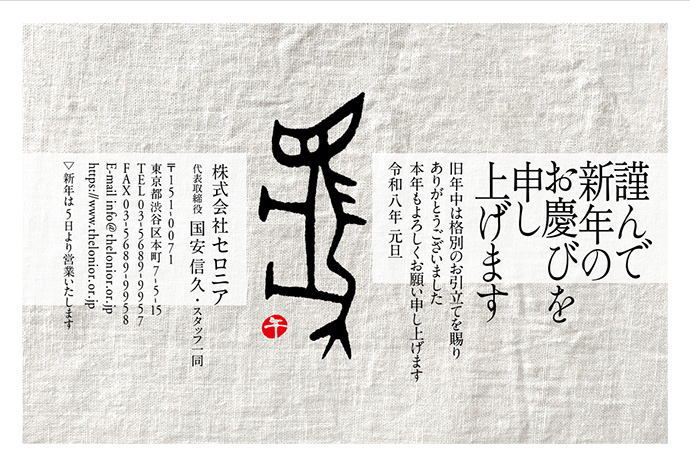 謹んで
新年の
お慶びを
申し
上げます
旧年中は格別のお引立てを賜り
ありがとうございました
本年もよろしくお願い申し上げます
令和八年 元旦
午
株式会社 セロニア
代表取締役 国安 信久・スタッフ一同
〒151-0071
東京都渋谷区本町7-5-15
TEL 03-5689-9957
FAX 03-5689-9958
E-mail info@thelonior.or.jp
https://www.thelonior.or.jp
▽新年は5日より営業いたします